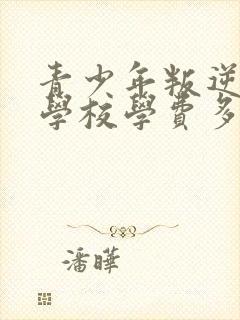 青少年叛逆
學校學費多
潘曄